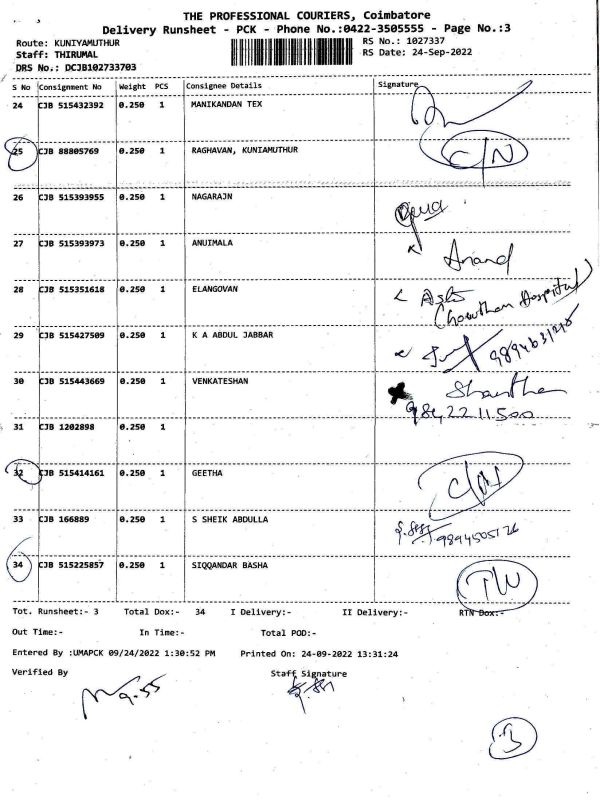 THE PROFESSIONAL COURIERS, Coimbatore
Delivery Runsheet - PCK - Phone No.:0422-3505555 - Page No.:3
Route: KUNIYAMUTHUR
RS No.: 1027337
Staff: THIRUMAL
RS Date: 24-Sep-2022
DRS No.: DCJB102733703
S No Consignment No Weight PCS Consignee Details Signature
24 CJB 515432392 0.250 1 MANIKANDAN TEX
25 CJB 88805769 0.250 1 RAGHAVAN, KUNIAMUTHUR C/N
26 CJB 515393955 0.250 1 NAGARAJN
27 CJB 515393973 0.250 1 ANUIMALA Anand
28 CJB 515351618 0.250 1 ELANGOVAN
Hospital
29 CJB 515427509 0.250 1 K A ABDUL JABBAR
30 CJB 515443669 0.250 1 VENKATESHAN
31 CJB 1202898 0.250 1
32 CJB 515414161 0.250 1 GEETHA
33 CJB 166889 0.250 1 S SHEIK ABDULLA
34 CJB 515225857 0.250 1 SIQQANDAR BASHA
Tot. Runsheet:- 3 Total Dox:- 34 I Delivery:- II Delivery:- RTN Dox:-
Out Time:- In Time:- Total POD:-
Entered By :UMAPCK 09/24/2022 1:30:52 PM Printed On: 24-09-2022 13:31:24
Verified By Staff Signature
9.55
3